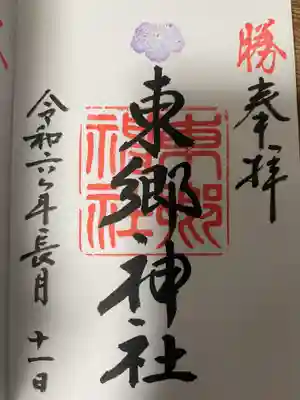 勝
奉拝
東郷神社
東郷神社
令和六年長月十一日